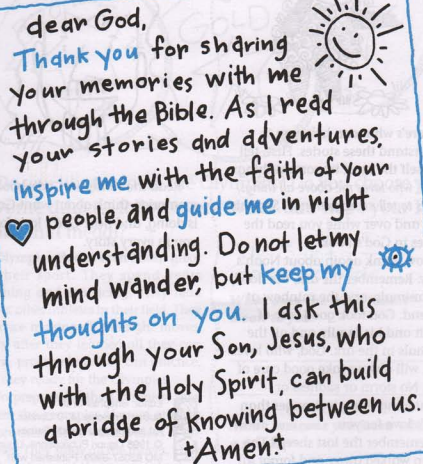 dear God,
Thank you for sharing
your memories with me
through the Bible. As I read
your stories and adventures,
inspire me with the faith of your
people, and guide me in right
understanding. Do not let my
mind wander, but keep my
thoughts on you. I ask this
through your Son, Jesus, who
with the Holy Spirit, can build
a bridge of knowing between us.
†Amen†